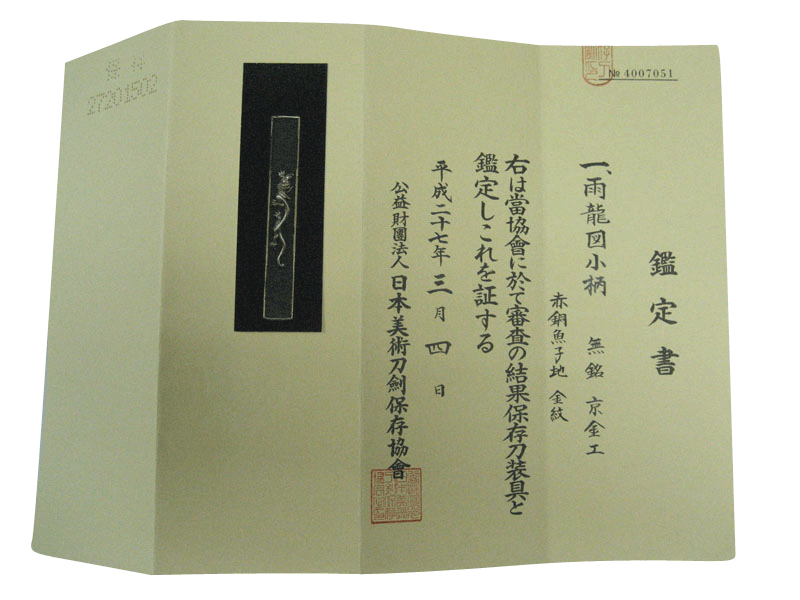 № 4007051
鑑定書
一、雨龍図小柄 無銘 京金工
赤銅魚子地 金紋
右は當協會に於て審査の結果保存刀装具と
鑑定しこれを証する
平成二十七年三月四日
公益財團法人 日本美術刀劍保存協會
保 井
27201502